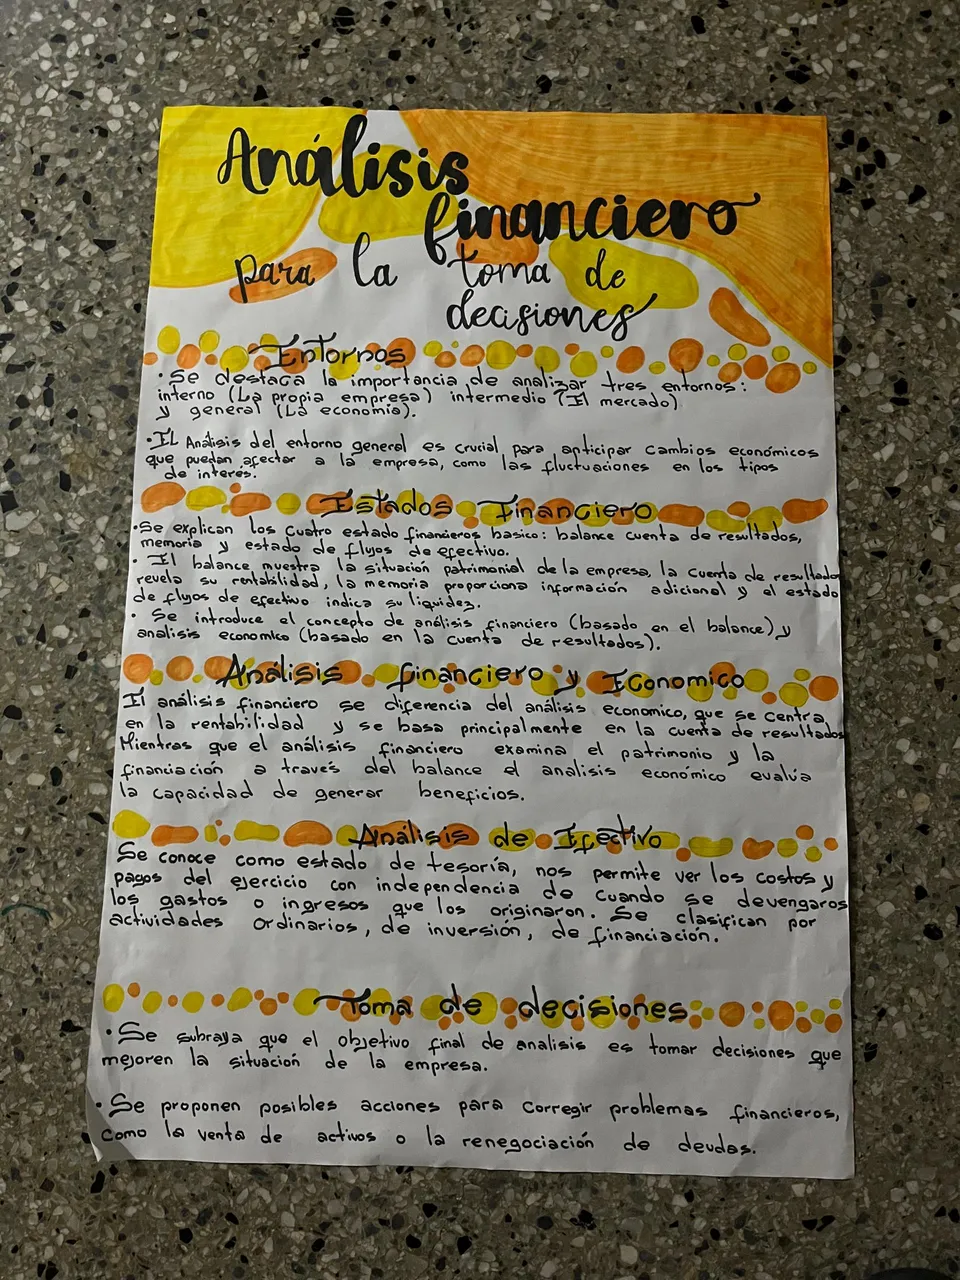 Análisis
financiero
para la toma de
decisiones
Entornos
• Se destaca la importancia de analizar tres entornos:
interno (La propia empresa) intermedio (El mercado)
y general (La economía).
• El Análisis del entorno general es crucial para anticipar cambios económicos
que puedan afectar a la empresa, como las fluctuaciones en los tipos
de interés.
Estados Financiero
• Se explican los cuatro estado financieros basico: balance cuenta de resultados,
memoria y estado de flujos de efectivo.
• El balance muestra la situación patrimonial de la empresa, la cuenta de resultados
revela su rentabilidad, la memoria proporciona información adicional y el estado
de flujos de efectivo indica su liquidez.
• Se introduce el concepto de análisis financiero (basado en el balance) y
análisis economico (basado en la cuenta de resultados).
Análisis financiero y Economico
El análisis financiero se diferencia del análisis economico, que se centra
en la rentabilidad y se basa principalmente en la cuenta de resultados
Mientras que el análisis financiero examina el patrimonio y la
financiación a través del balance el analisis económico evalúa
la capacidad de generar beneficios.
Análisis de Efectivo
Se conoce como estado de tesoría, nos permite ver los costos y
pagos del ejercicio con independencia de cuando se devengaros
los gastos o ingresos que los originaron. Se clasifican por
actividades ordinarios, de inversión, de financiación.
Toma de decisiones
• Se subraya que el objetivo final de analisis es tomar decisiones que
mejoren la situación de la empresa.
• Se proponen posibles acciones para corregir problemas financieros,
como la venta de activos o la renegociación de deudas.